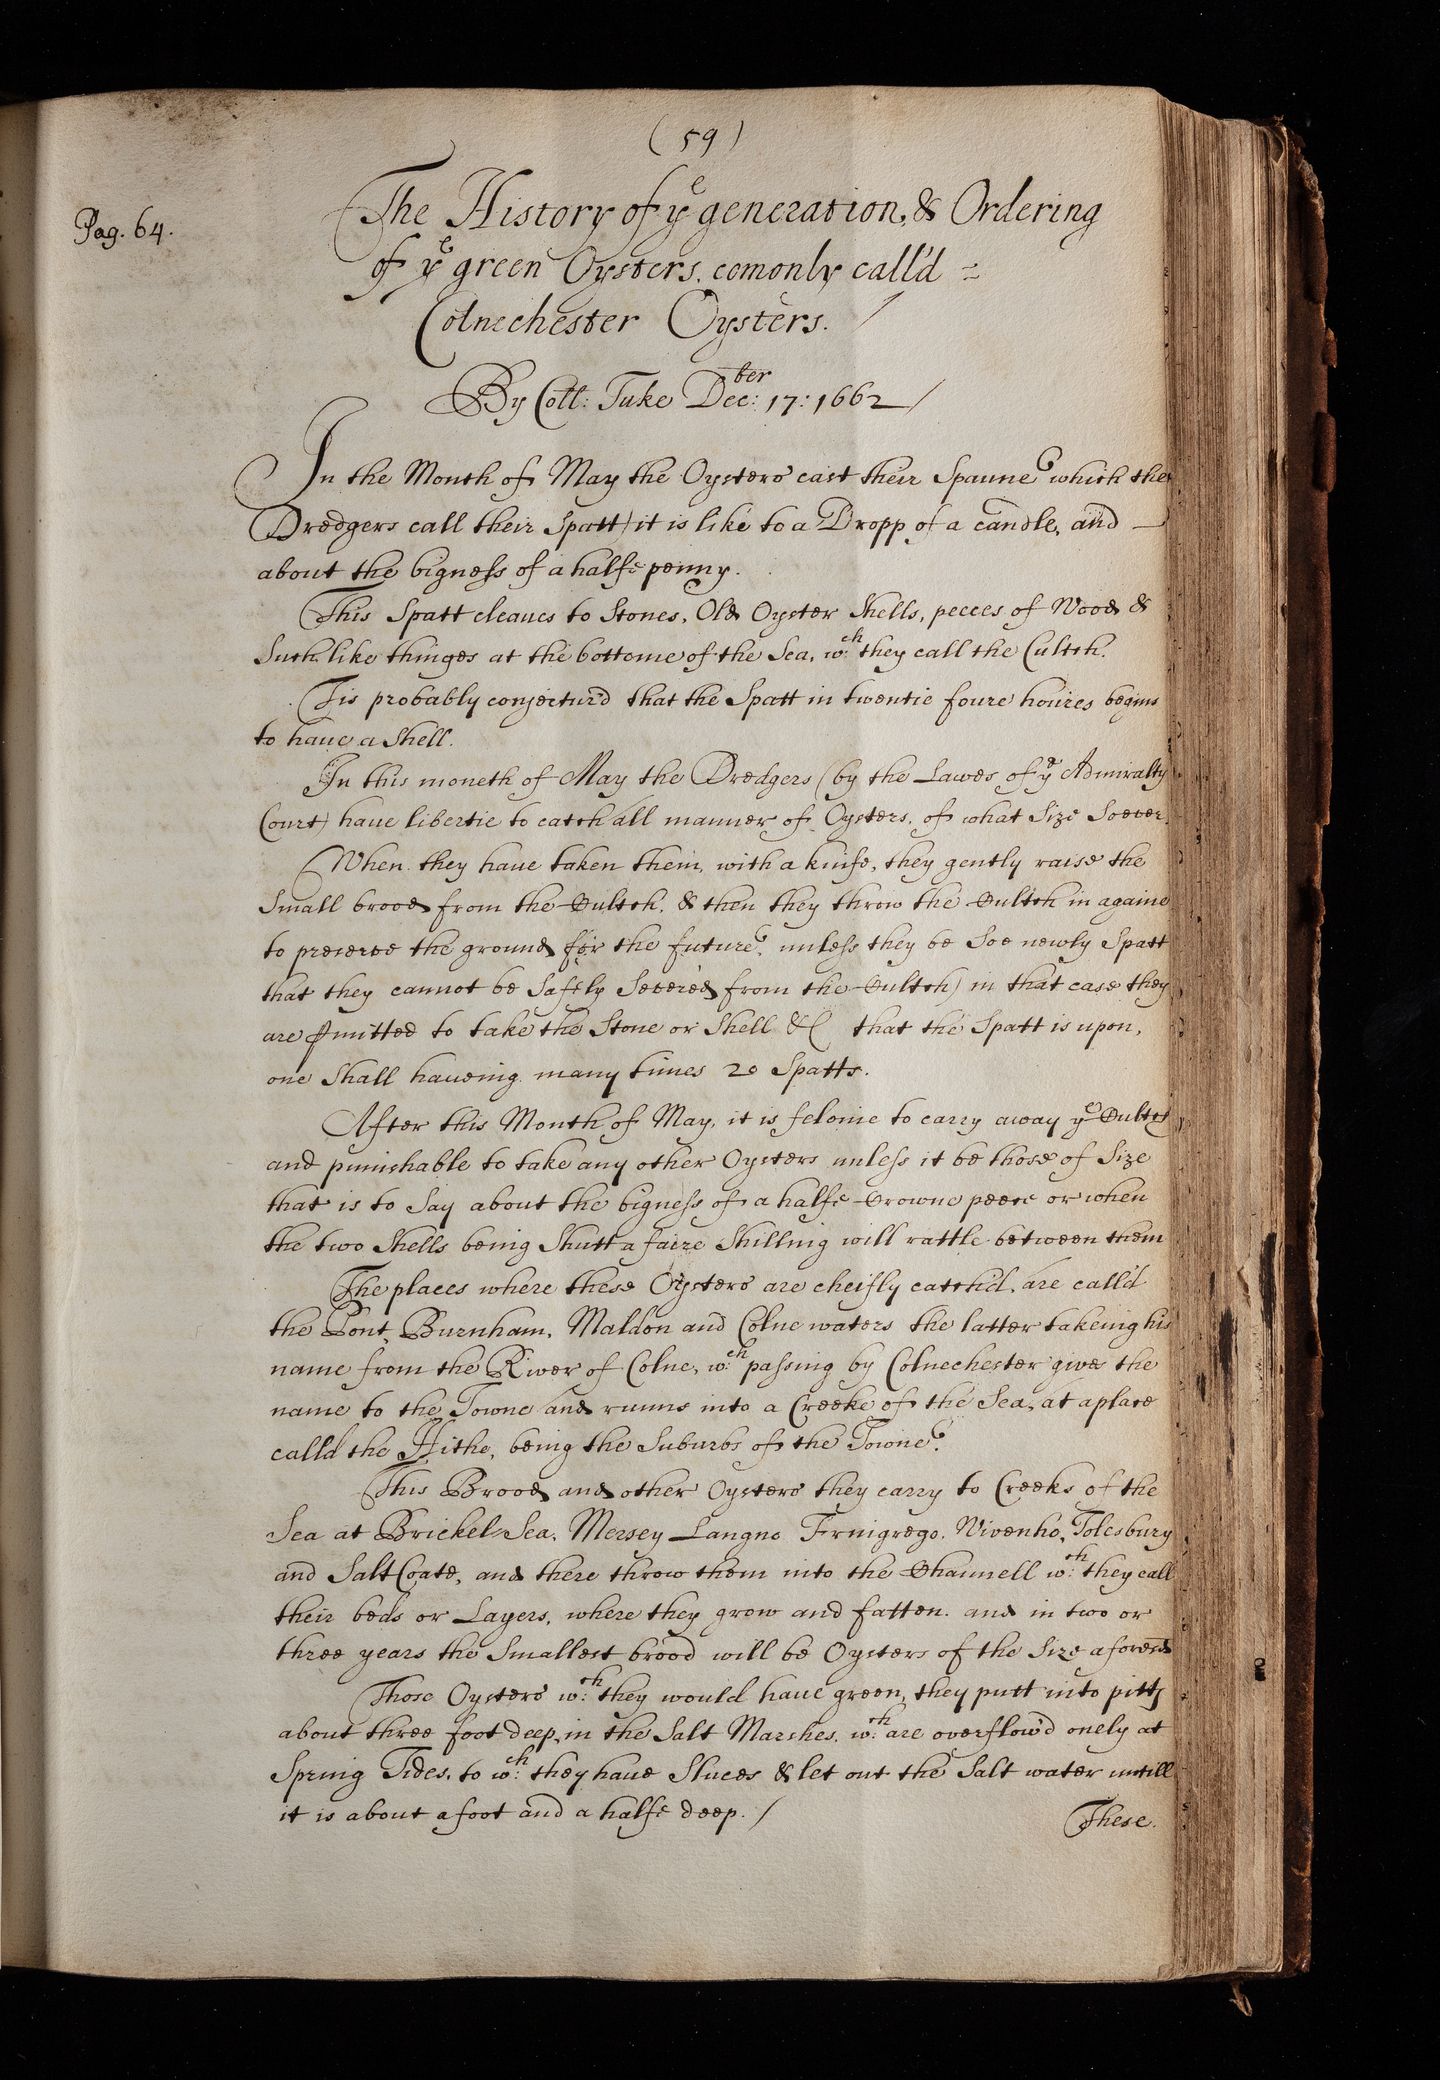 (59)
Pag. 64.
The History of yᵉ generation, & Ordering
of yᵉ green Oysters, comonly call'd =
Colnechester Oysters. /
By Coll: Tuke Decᵗᵉʳ: 17: 1662 /
In the Month of May the Oysters cast their Spaune which the
Dredgers call their Spatt) it is like to a Dropp of a candle, and —
about the bigness of a halfe penny.
This Spatt cleaues to Stones, Old Oyster Shells, peeces of Wood &
Such like thinges at the bottome of the Sea, wᶜʰ: they call the Cultch.
Tis probably conjectur'd that the Spatt in twentie foure houres begins
to haue a Shell.
In this moneth of May the Dredgers (by the Lawes of yᵉ Admiralty
Court) haue libertie to catch all manner of Oysters, of what Size Soever.
When they haue taken them, with a knife, they gently raise the
Small brood from the Cultch, & then they throw the Cultch in againe
to preserve the ground for the future, unless they be Soe newly Spatt
that they cannot be Safely Severed from the Cultch) in that case they
are ꝑmitted to take the Stone or Shell &c that the Spatt is upon,
one Shall haueing many times 20 Spatts.
After this Month of May, it is felonie to carry away yᵉ Cultch
and punishable to take any other Oysters unless it be those of Size
that is to Say about the bigness of a halfe Crowne peece or when
the two Shells being Shutt a faire Shilling will rattle between them
The places where these Oysters are cheifly catch'd, are call'd
the Pont, Burnham, Maldon and Colne waters the latter takeing his
name from the River of Colne, wᶜʰ: passing by Colnechester gives the
name to the Towne and runns into a Creeke of the Sea, at a place
calld the Hithe, being the Suburbs of the Towne.
This Brood and other Oysters they carry to Creeks of the
Sea at Brickel-Sea, Mersey Langno Fringrego, Wivenho, Tolesbury
and Salt Coate, and there throw them into the Channell wᶜʰ: they call
their beds or Layers, where they grow and fatten, and in two or
three years the Smallest brood will be Oysters of the Size aforesd
Those Oysters wᶜʰ: they would haue green, they putt into pitts
about three foot deep, in the Salt Marshes, wᶜʰ: are overflow'd onely at
Spring Tides, to wᶜʰ: they haue Sluces & let out the Salt water untill
it is about a foot and a halfe deep. /
These.